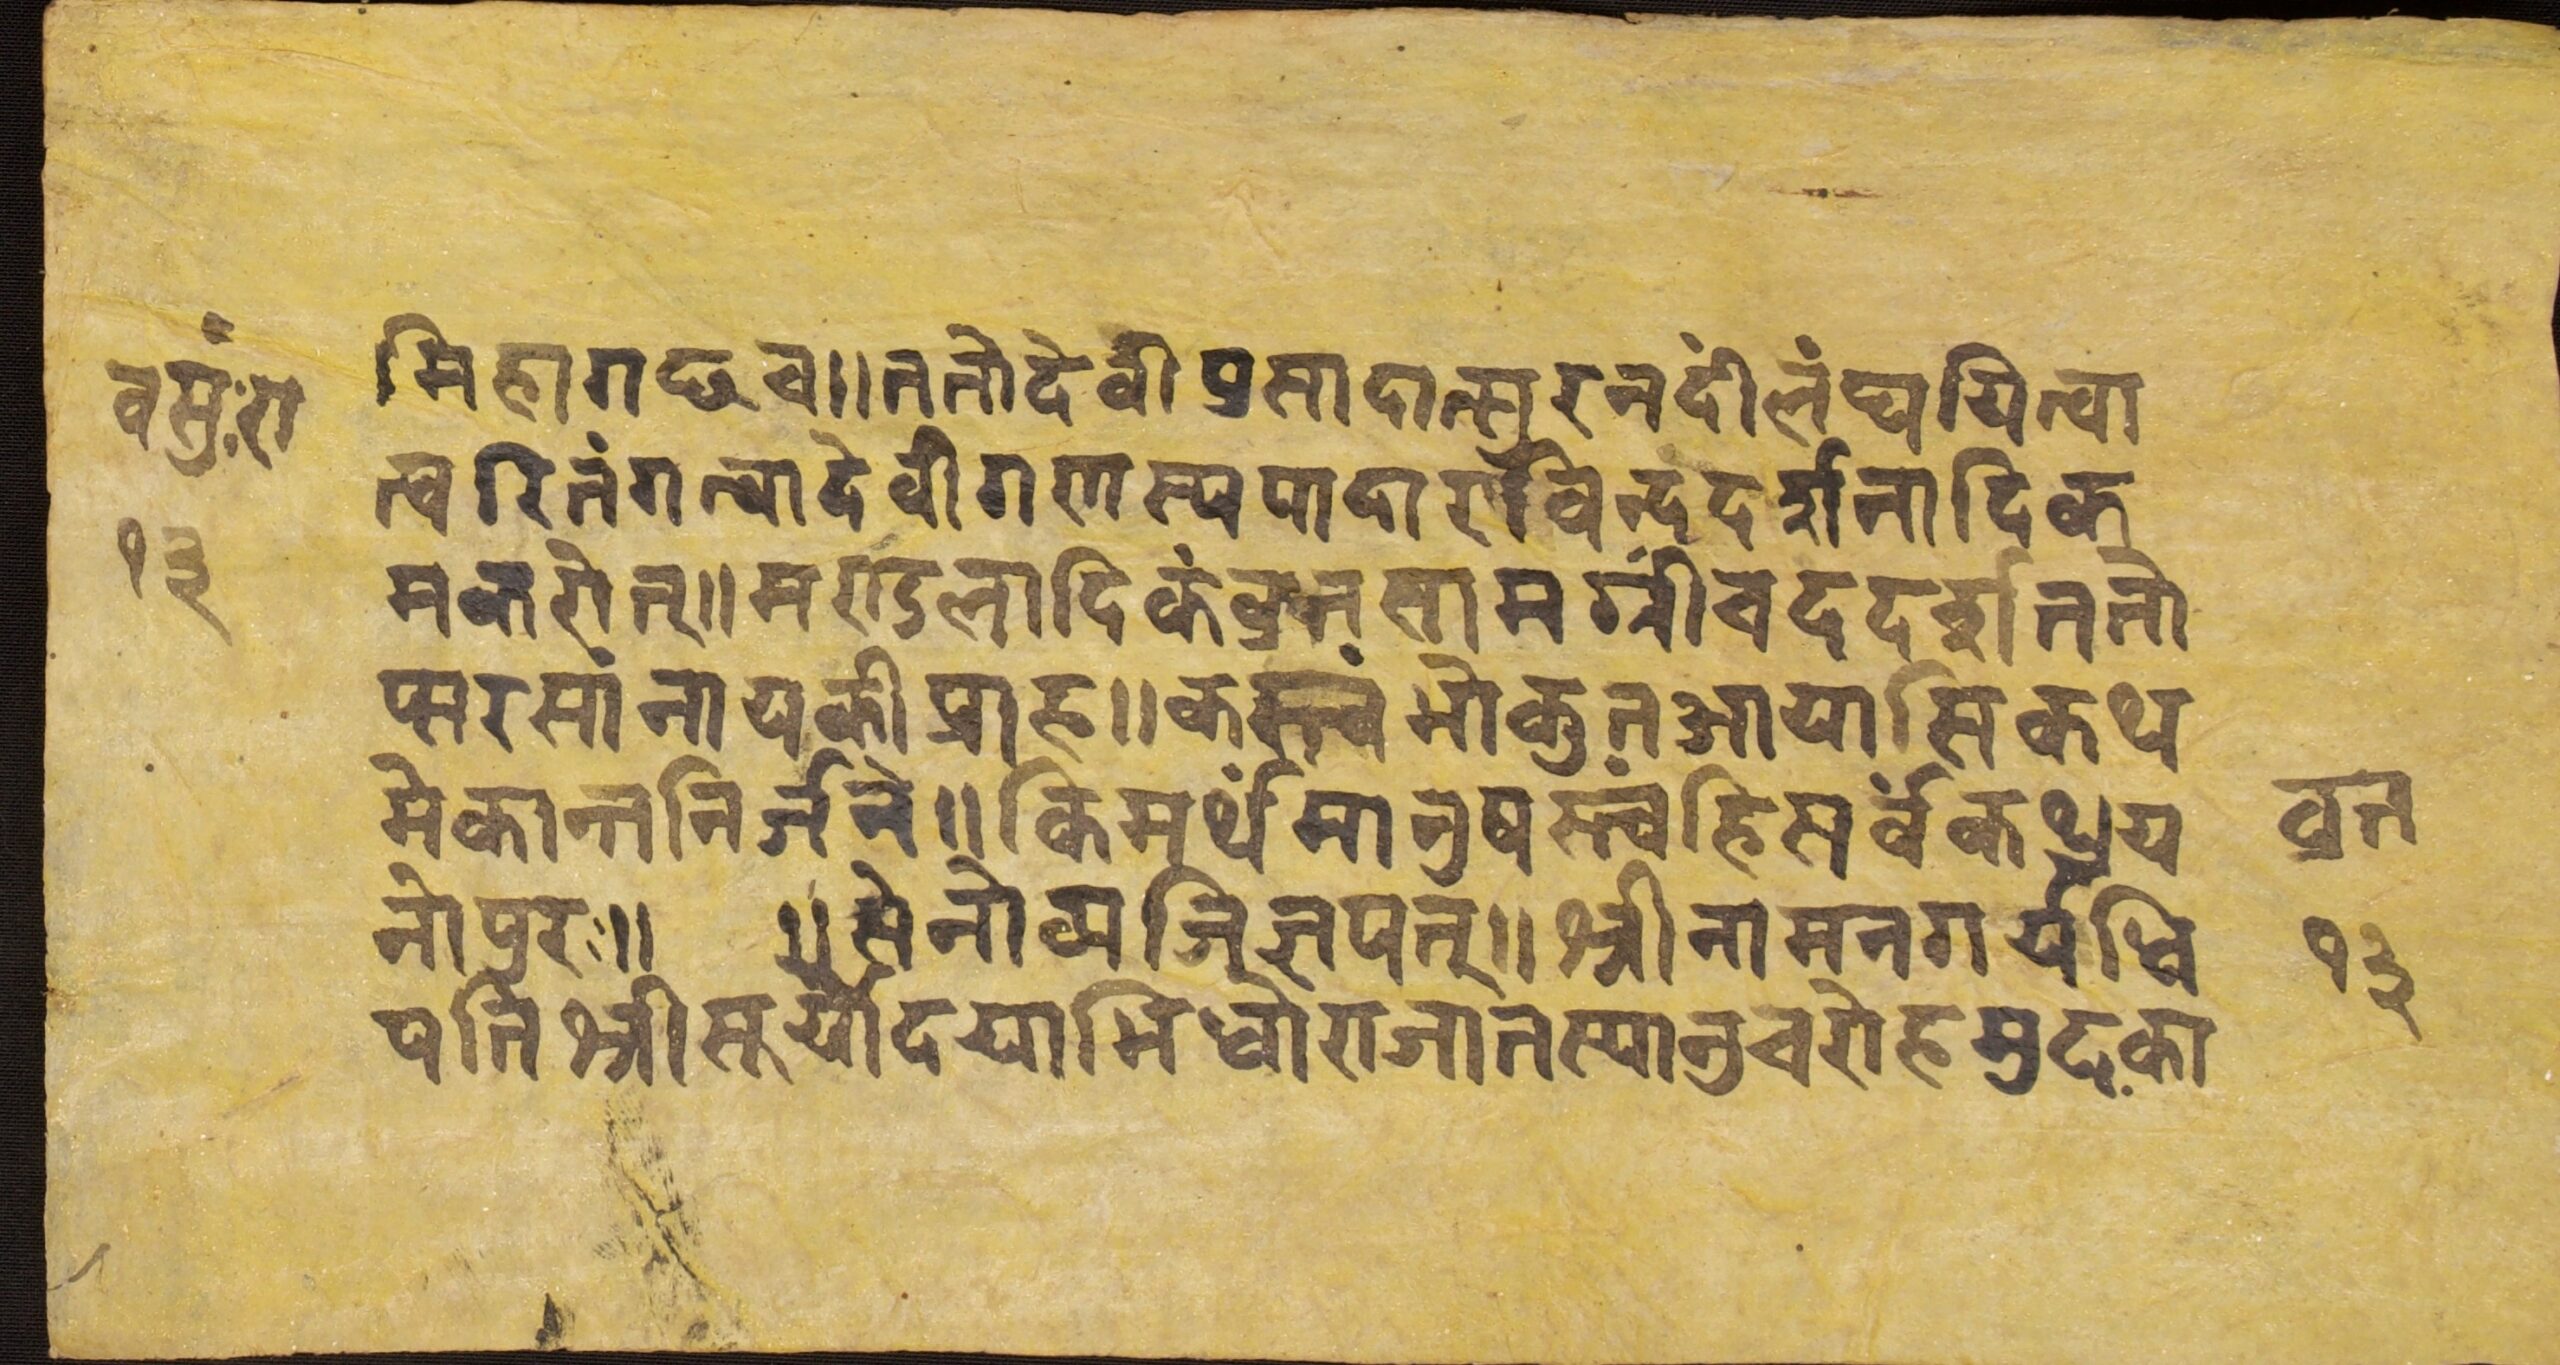 वसुंःरा
१३
मिहागछव॥ततोदेवीप्रसादात्सुरनदींलंघ्घयित्वा
त्वरितंगत्वादेवीगणस्यपादारविन्ददर्शनादिक
मकरोत्॥मण्डलादिकंव्रतसामग्रींवददर्शततो
प्सरसांनायकीप्राह॥कस्त्वंभोकुतआयासिकथ
मेकान्तनिर्जने॥किमर्थंमानुषस्त्वंहिसर्वंकथय
नोपुरः॥ ॥सेनोव्यजिज्ञपत्॥श्रीनामनगर्यधि
पतिश्रीसूर्योदयाभिधोराजातस्यानुचरोहमुदका
व्रत
१३